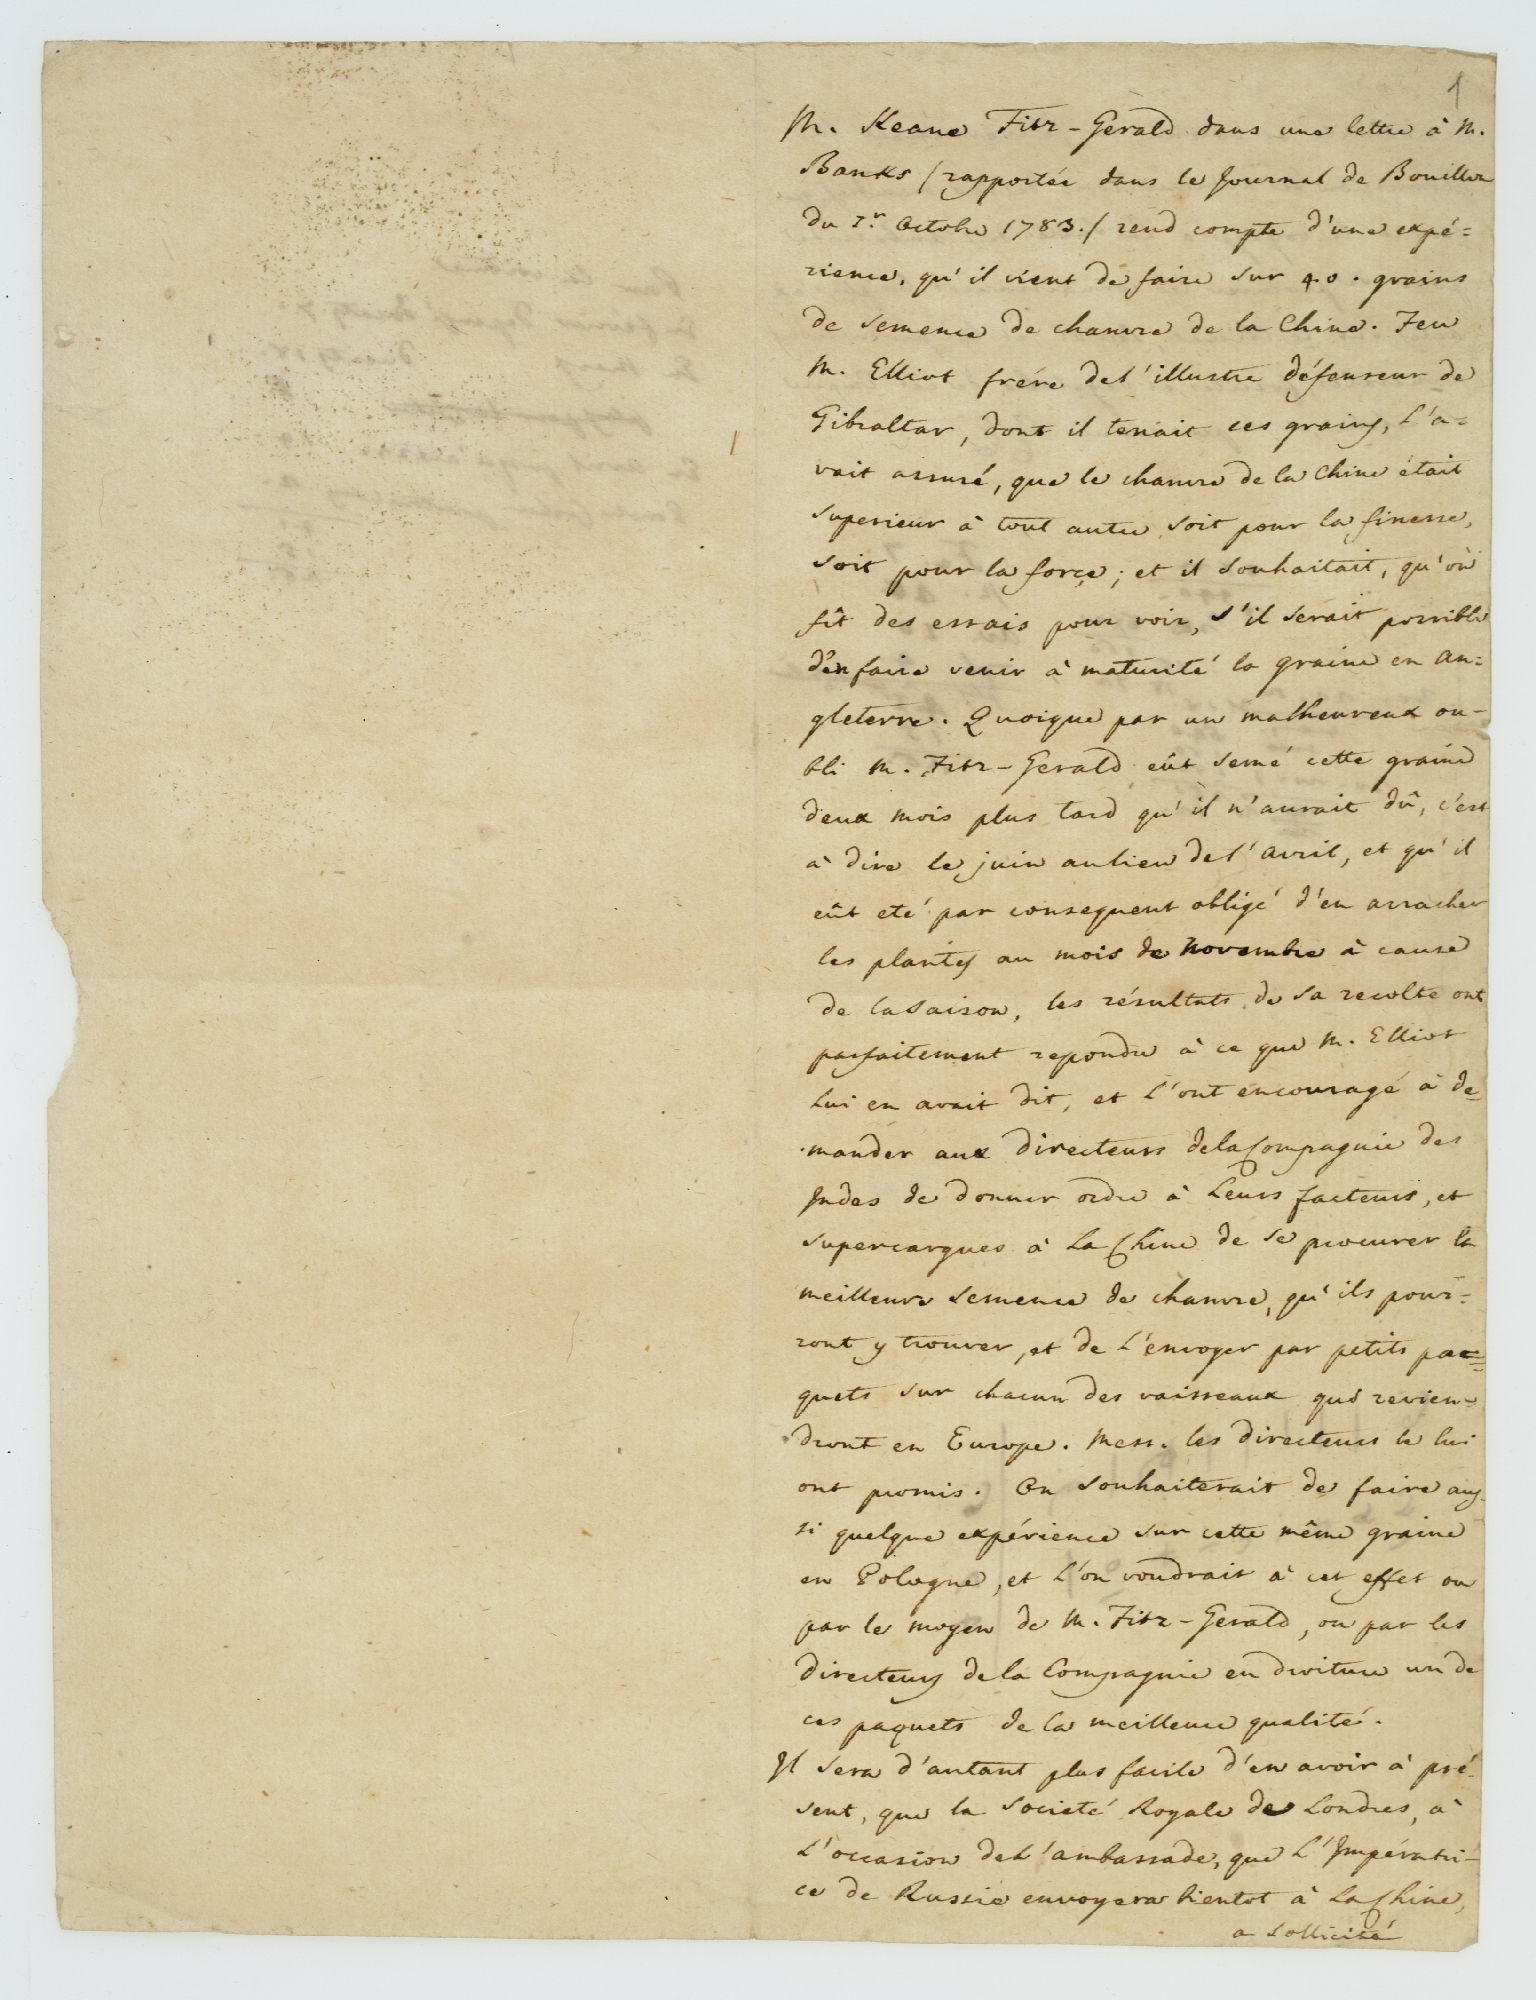 1
M. Keane Fitz-Gerald dans une lettre à M.
Banks / rapportée dans le Journal de Bouillon
du 1.r Octobre 1783. / rend compte d'une expé=
rience, qu'il vient de faire sur 40. grains
de semence de chanvre de la Chine. Feu
M. Elliot frére de l'illustre défenseur de
Gibraltar, dont il tenait ces grains, l'a=
vait assuré, que le chanvre de la Chine était
superieur à tout autre soit pour la finesse,
soit pour la force; et il souhaitait, qu'on
fît des essais pour voir, s'il serait possible
d'en faire venir à maturité la graine en An=
gleterre. Quoique par un malheureux ou-
bli M. Fitz-Gerald eût semé cette graine
deux mois plus tard qu'il n'aurait dû, c'est
à dire le juin aulieu de l'avril, et qu'il
eût eté par consequent obligé d'en arracher
les plantes au mois de Novembre à cause
de la saison, les résultats de sa recolte ont
parfaitement repondu à ce que M. Elliot
lui en avait dit, et l'ont encouragé à de=
mander aux directeurs de la Compagnie des
Indes de donner ordre à leurs facteurs, et
supercargues à la Chine de se procurer la
meilleure semence de chanvre, qu'ils pour=
ront y trouver, et de l'envoyer par petits pac=
quets sur chacun des vaisseaux qui revien=
dront en Europe. Mess. les directeurs le lui
ont promis. On souhaiterait de faire aus-
si quelque expérience sur cette même graine
en Pologne, et l'on voudrait à cet effet ou
par le moyen de M. Fitz-Gerald, ou par les
directeurs de la Compagnie en droiture un de
ces paquets de la meilleure qualité.
Il sera d'autant plus facile d'en avoir à pré-
sent, que la Societé Royale de Londres, à
l'occasion de l'ambassade, que l'Impératri-
ce de Russie envoyera bientot à la Chine,
a sollicité